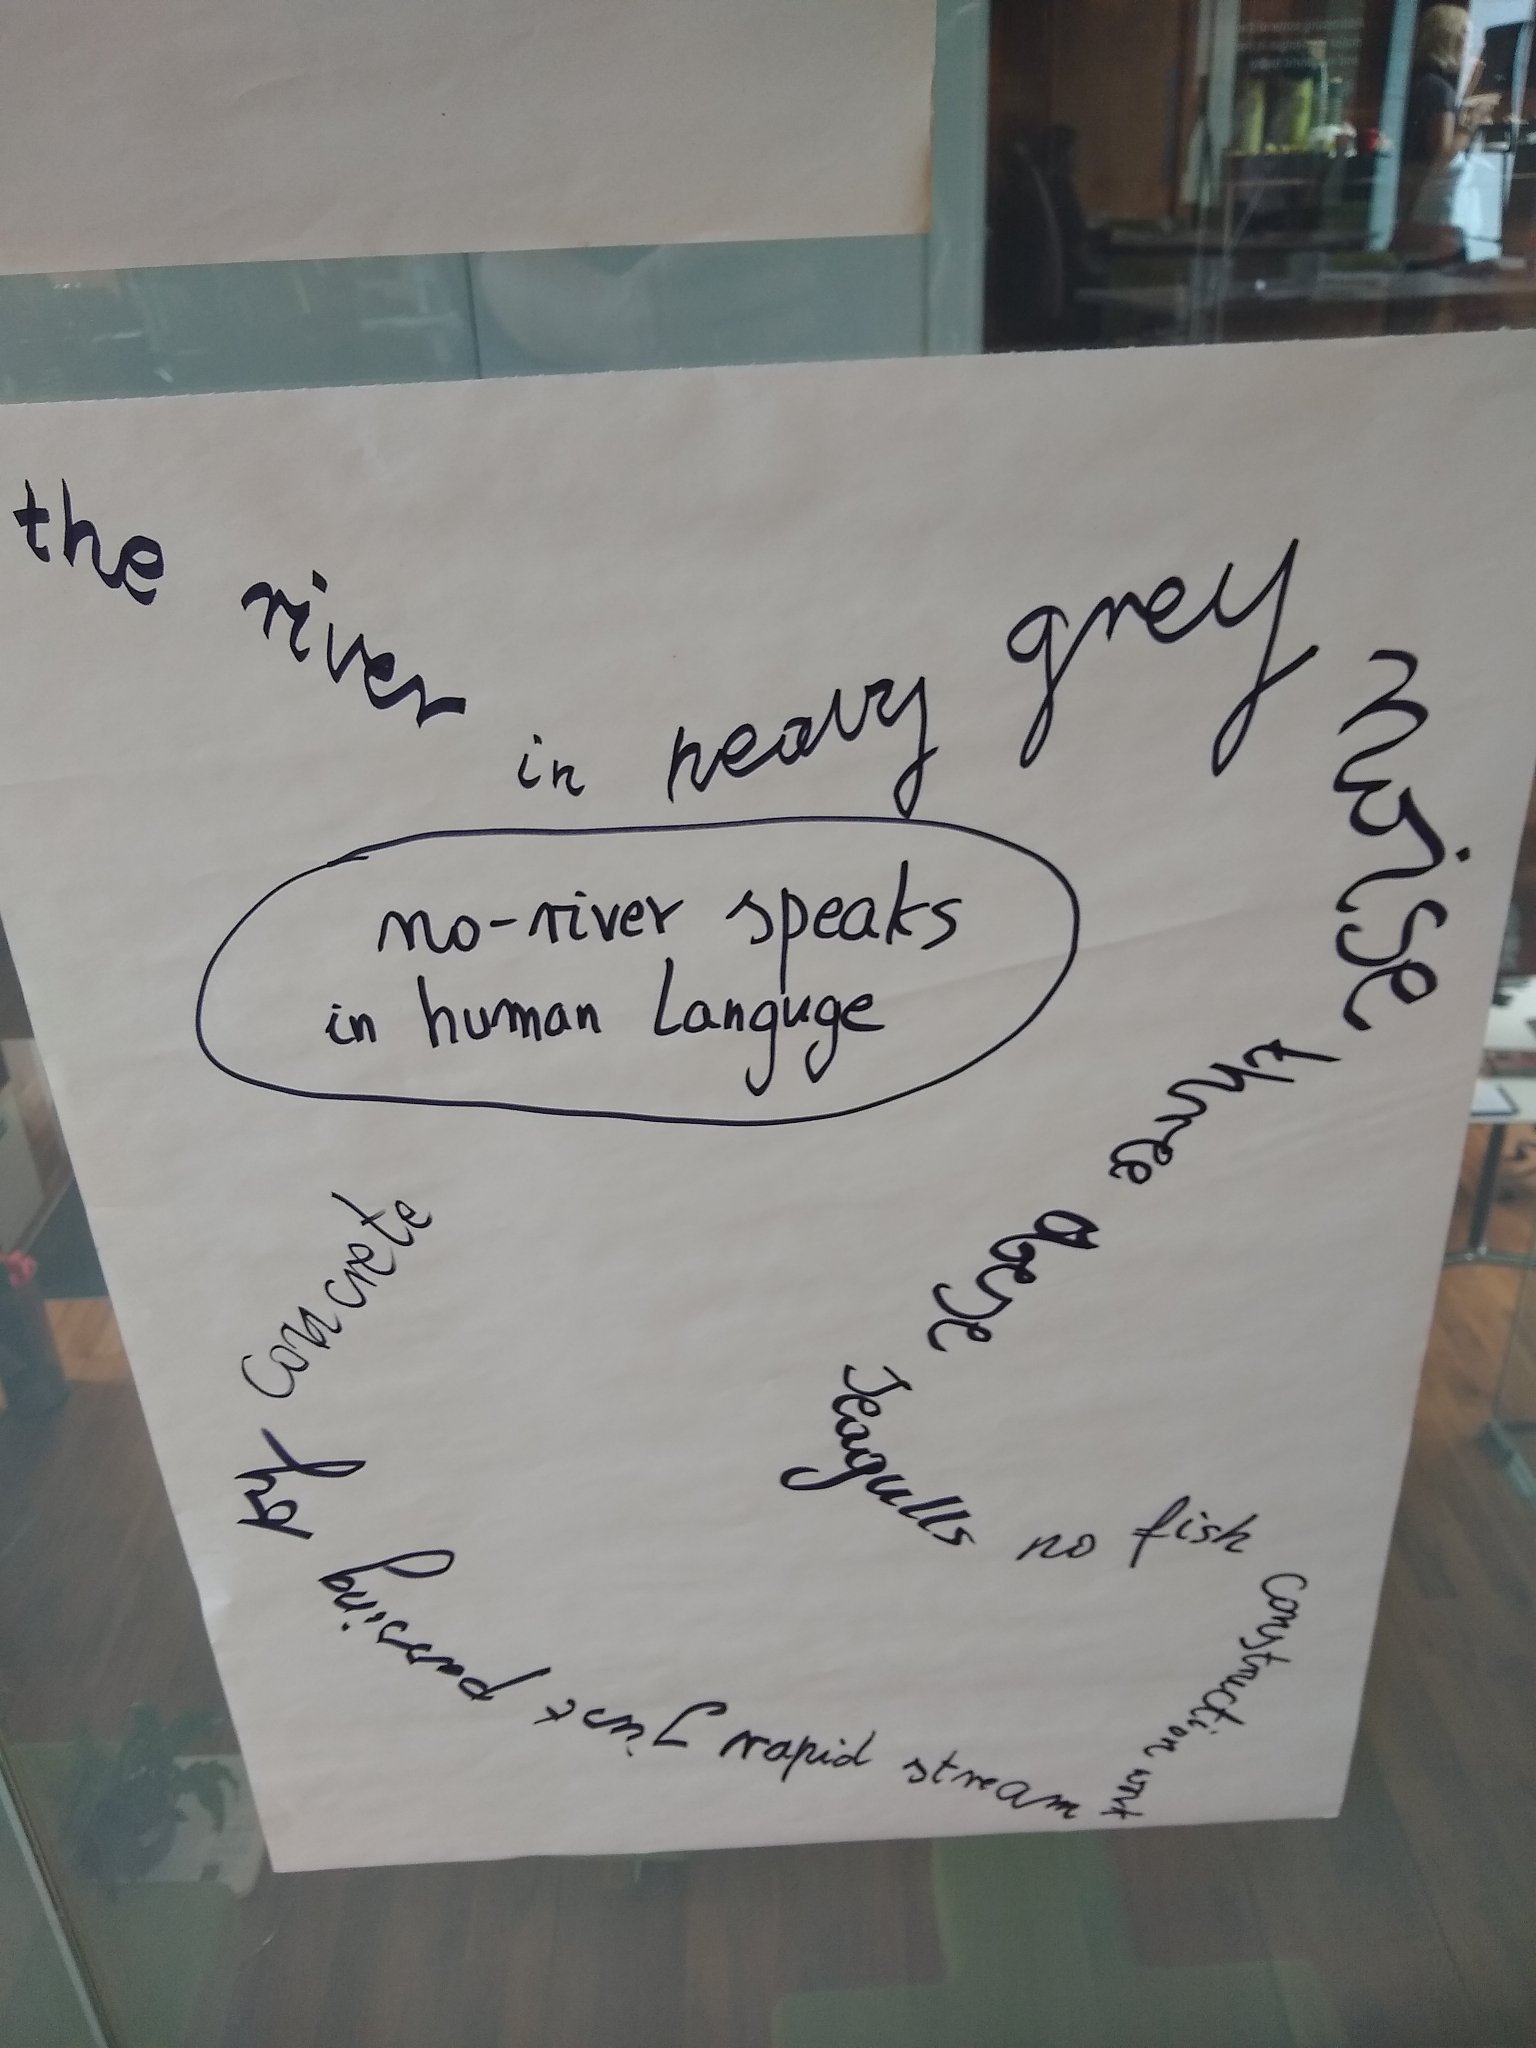 the river in heavy grey noise three dese seagulls no fish construction work rapid stream just passing by concrete
no-river speaks
in human Languge